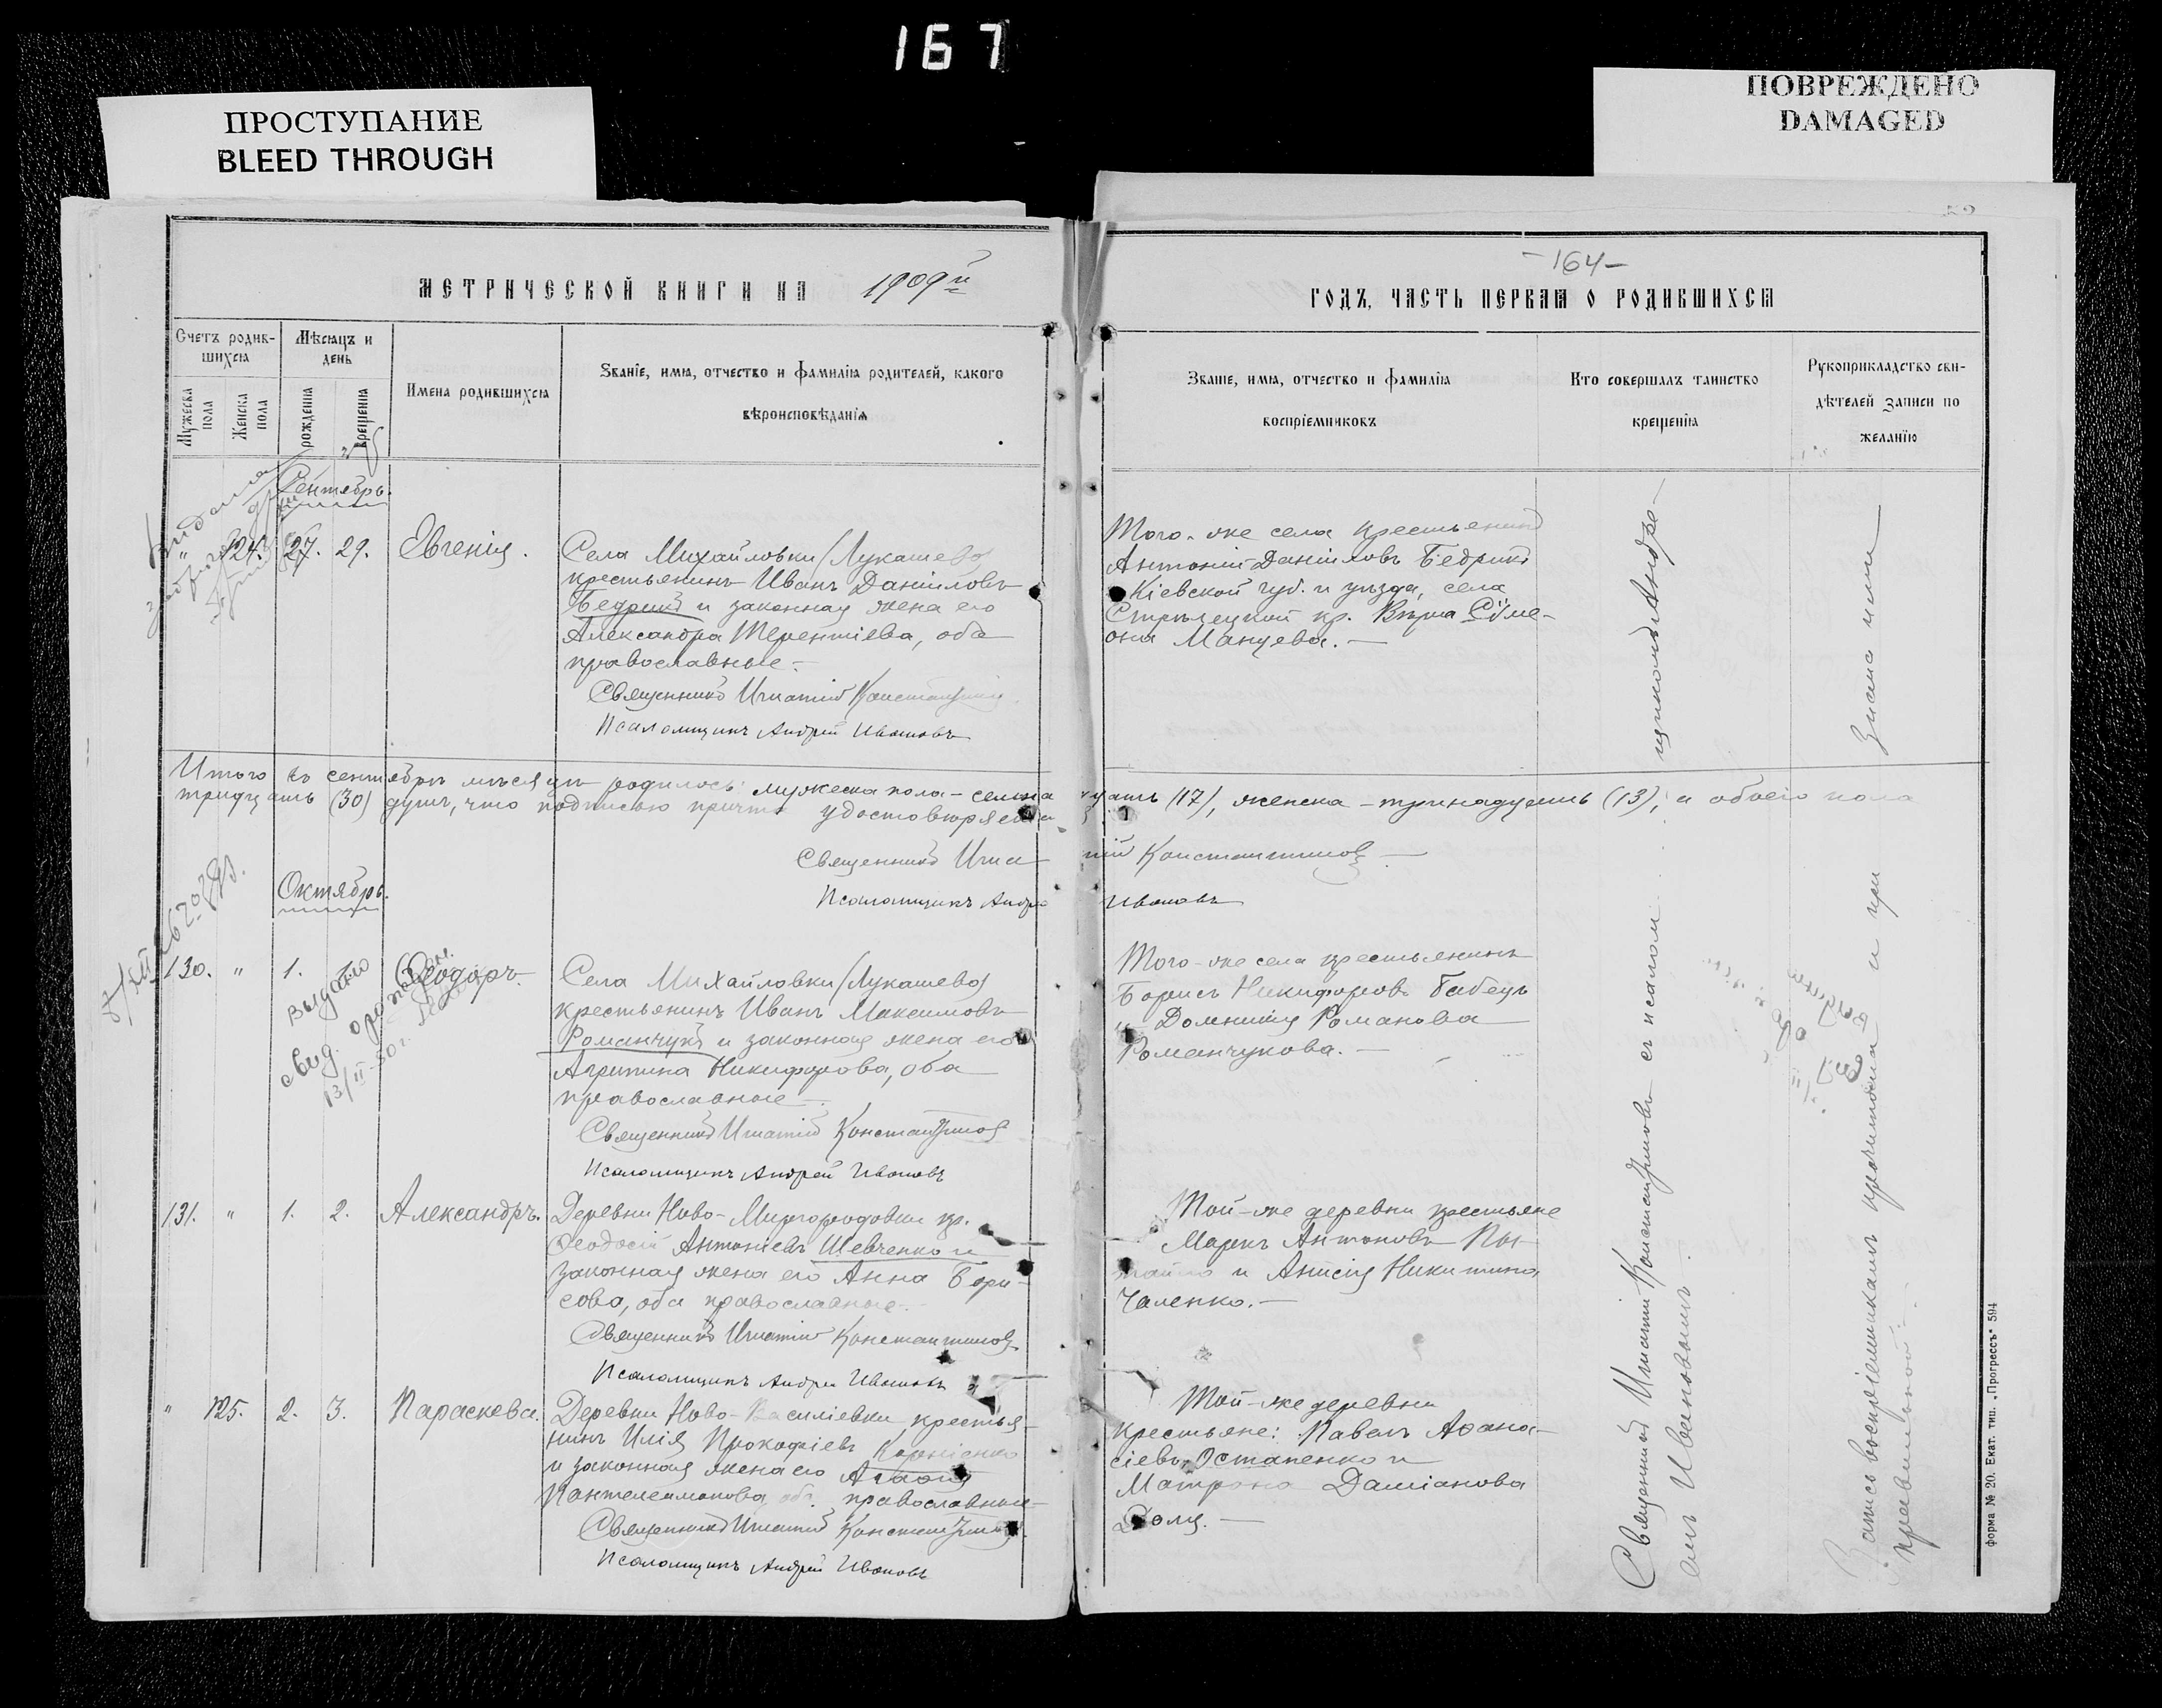 167
ПРОСТУПАНИЕ
BLEED THROUGH
ПОВРЕЖДЕНО
DAMAGED
МЕТРИЧЕСКОЙ КНИГИ НА 1909й
Счетъ родив-
шихся
Мѣсяцъ и
день
Мужеска
пола
Женска
пола
рожденія
крещенія
Имена родившихся
Званіе, имя, отчество и фамилія родителей, какого
вѣроисповѣданія
Сентябрь.
" 124. 27. 29. Евгенія.
Села Михайловки (Лукашево)
крестьянинъ Иванъ Даніиловъ
Бедрикъ и законная жена его
Александра Терентіева, оба
православные.-
Священникъ Игнатій Константиновъ
Псаломщикъ Андрей Ивановъ
Итого въ сентябрѣ мѣсяцѣ родилось: мужеска пола - семна
тридцать (30) душъ, что подписью причта удостовѣряемъ
Священникъ Игна
Псаломщикъ Андре
Октябрь.
130. " 1. 1. Ѳеодоръ.
выдано
свид.
13/II-50 г.
Села Михайловки (Лукашево)
крестьянинъ Иванъ Максимовъ
Романчукъ и законная жена его
Агрипина Никифорова, оба
православные.-
Священникъ Игнатій Константиновъ
Псаломщикъ Андрей Ивановъ
131. " 1. 2. Александръ.
Деревни Ново-Миргородовки кр.
Ѳеодосій Антоніевъ Шевченко и
законная жена его Анна Бори-
сова, оба православные.-
Священникъ Игнатій Константиновъ
Псаломщикъ Андрей Ивановъ
" 125. 2. 3. Параскева.
Деревни Ново-Василіевки крестья-
нинъ Илія Прокофіевъ Корніенко
и законная жена его Агаѳія
Пантелеимонова, оба православные
Священникъ Игнатій Константиновъ
Псаломщикъ Андрей Ивановъ
- 164 -
ГОДЪ, ЧАСТЬ ПЕРВАЯ О РОДИВШИХСЯ
Званіе, имя, отчество и фамилія
воспріемниковъ
Кто совершалъ таинство
крещенія
Рукоприкладство сви-
дѣтелей записи по
желанію
Того-же села крестьянинъ
Антоній Даніиловъ Бедрикъ
Кіевской губ. и уѣзда, села
кр. Вѣра Сѵме-
она Манцева.-
дцать (17), женска - тринадцать (13), а обоего пола
тій Константиновъ
Ивановъ
Того-же села крестьянинъ
Борисъ Никифоровъ Бабецъ
и Домникія Романова
Романчукова.-
Той-же деревни крестьяне
Маркъ Антоновъ
и Анисія Никитина
Чаленко.-
Той-же деревни
крестьяне: Павелъ Аѳана-
сіевъ Остапенко и
Матрона Даміанова
Священникъ Игнатій Константиновъ съ псалом-
щикомъ Андре-
емъ Ивановымъ.
Запись воспріемникамъ прочитана и при
знана ими
правильной.-
форма № 20. Екат. тип. „Прогрессъ" 594